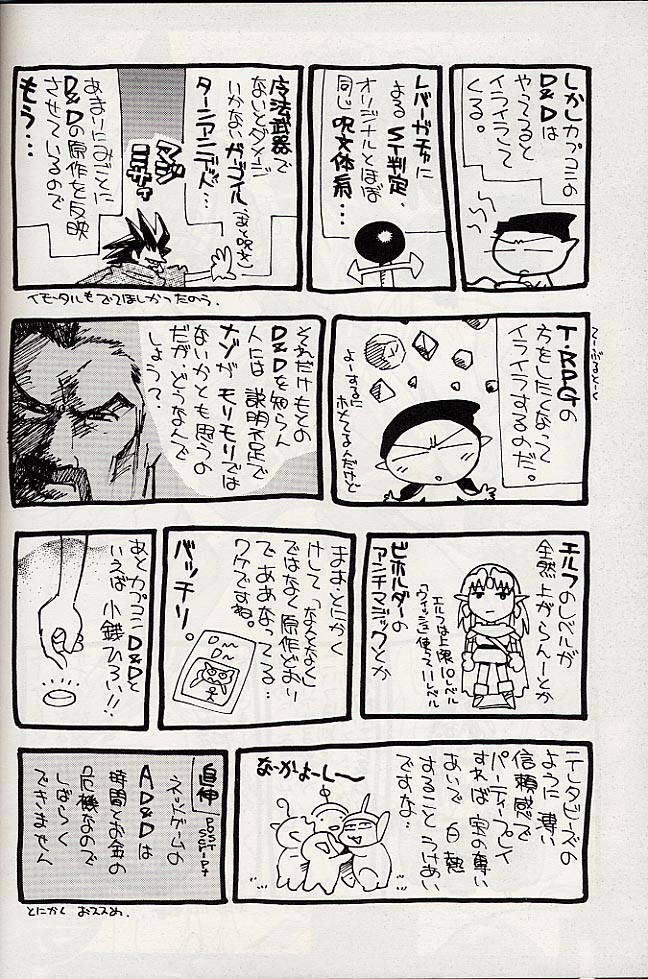 しかしカプコンの
D&Dは
やってると
イライラして
くる。
レバーガチャに
よるST判定、
オリジナルとほぼ
同じ呪文体系…
魔法武器で
ないとダメージ
いかないガーゴイル
(まと呪文)
ターンアンデッド…
マジ
ミサイ
あまりにみごとに
D&Dの原作を反映
させているので
もう…
イモータルもでてほしかったのう。
てーぶるとーく
T・RPGの
方をしたくなって
イライラするのだ。
よーするに
ホメてるんだけど
それだけもとの
D&Dを知らん
人には説明不足で
ナゾがモリモリでは
ないかとも思うの
だが、どうなんで
しょうって。
エルフのレベルが
全然上がらんーとか
エルフは上限10レベル
「ウィッシュ」使って11レベル
ビホルダーの
アンチマジックとか
まぁとにかく
けして「なんとなく」
ではなく原作どおり
であぁなってる…
ワケですね。
バッチリ。
D〜
D〜
あとカプコンD&Dと
いえば小銭ひろい!!
テレタビーズの
ように薄い
信頼感で
パーティープレイ
すれば宝の奪い
あいで白熱
することうけあい
ですな…
なーかよーしー
追伸
POST
SCRIPT
ネットゲームの
AD&Dは
時間とお金の
危機なので
しばらく
できません
とにかくおススメ。